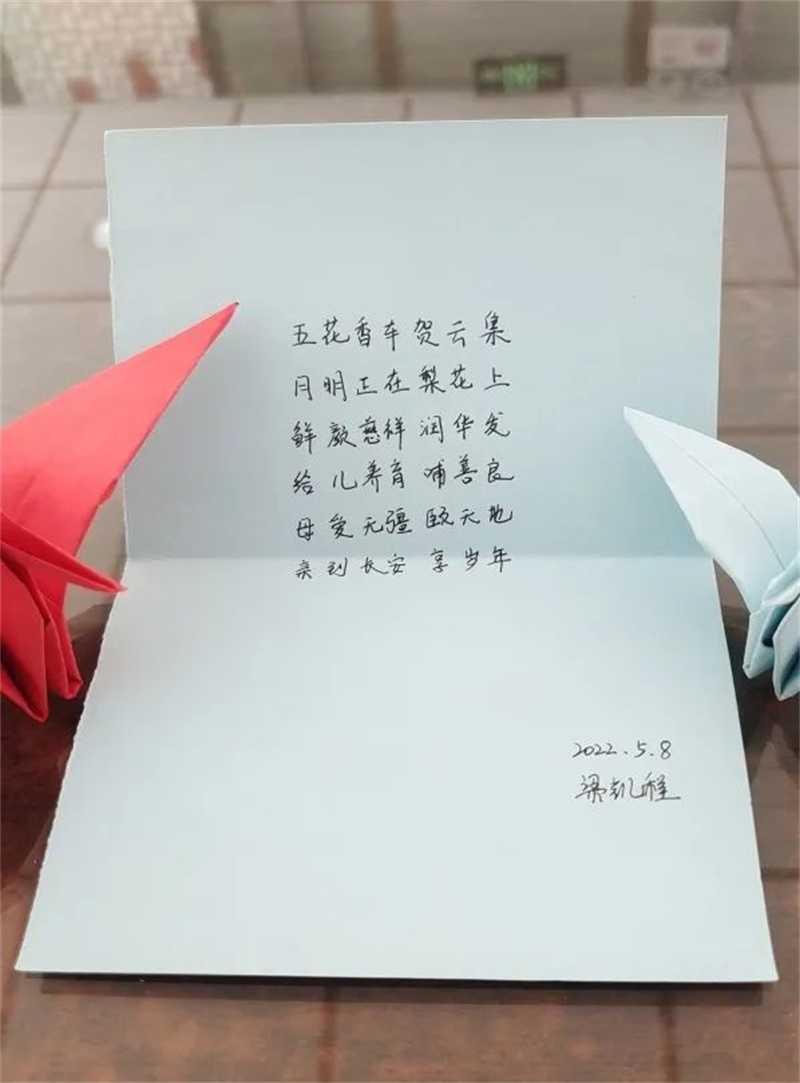 五花香车贺云集
月明正在梨花上
鲜颜慈祥润华发
给儿养育哺善良
母爱无疆颐天地
亲到长安享岁年
2022.5.8
梁凯程